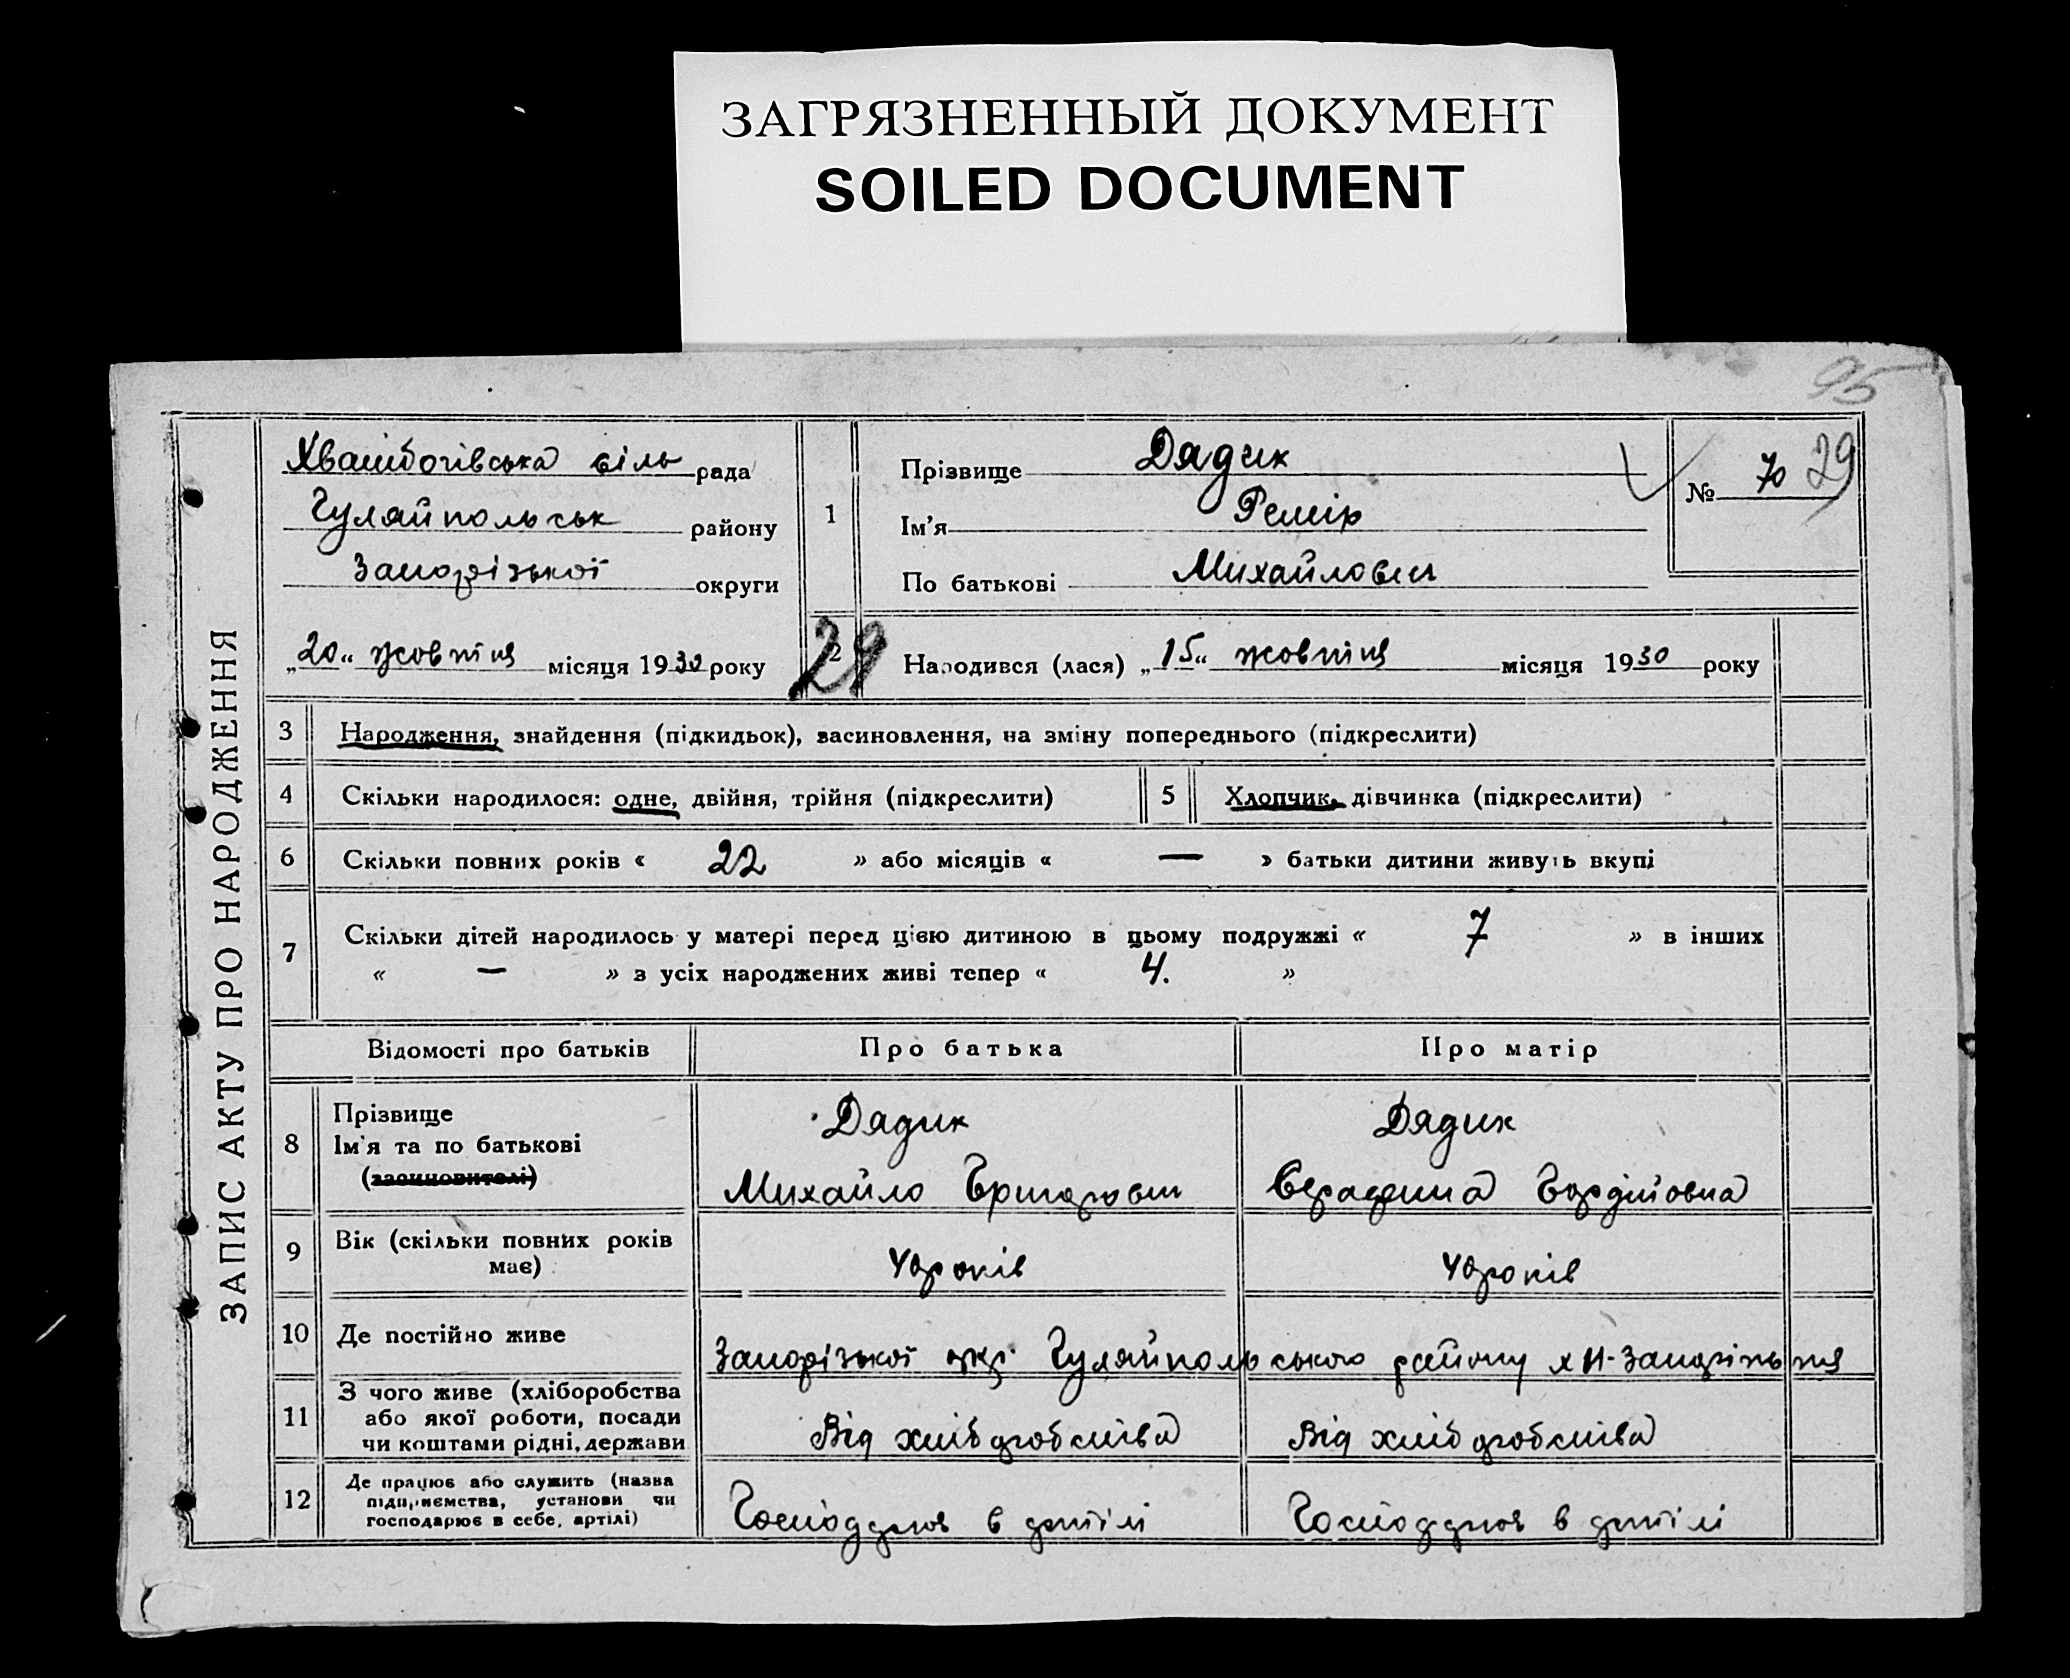 ЗАГРЯЗНЕННЫЙ ДОКУМЕНТ
SOILED DOCUMENT
95
ЗАПИС АКТУ ПРО НАРОДЖЕННЯ
сіль рада
Гуляйпольськ району
Запорізької округи
„20“ жовтня місяця 1930 року
1
Прізвище Дядик
Ім'я Ремір
По батькові Михайлович
№ 70 29
2 29
Народився (лася) „15“ жовтня місяця 1930 року
3 Народження, знайдення (підкидьок), засиновлення, на зміну попереднього (підкреслити)
4 Скільки народилося: одне, двійня, трійня (підкреслити)
5 Хлопчик, дівчинка (підкреслити)
6 Скільки повних років « 22 » або місяців « — » батьки дитини живуть вкупі
7 Скільки дітей народилось у матері перед цією дитиною в цьому подружжі « 7 » в інших
« — » з усіх народжених живі тепер « 4. »
Відомості про батьків Про батька Про матір
8 Прізвище
Ім'я та по батькові
(засиновителі)
Дядик
Михайло Григорович
Дядик
Серафима Гордіївна
9 Вік (скільки повних років
має)
років
років
10 Де постійно живе Запорізької окр. Гуляйпольського району х Н-Запоріжжя
11 З чого живе (хліборобства
або якої роботи, посади
чи коштами рідні, держави
Від хліборобства
Від хліборобства
12 Де працює або служить (назва
підприємства, установи чи
господарює в себе, артілі)
Господарює в артілі
Господарює в артілі